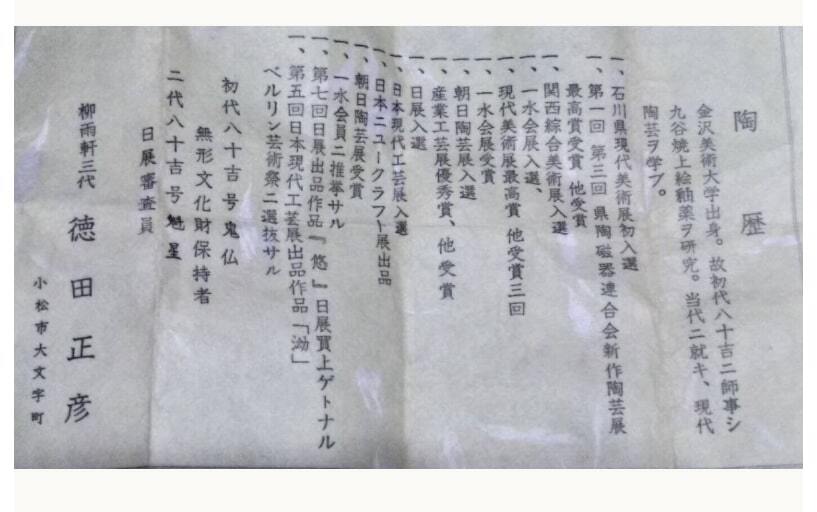 陶歴
金沢美術大学出身。故初代八十吉ニ師事シ
九谷焼上絵釉薬ヲ研究。当代ニ就キ、現代
陶芸ヲ学ブ。
一、石川県現代美術展初入選
一、第一回 第三回 県陶磁器連合会新作陶芸展
最高賞受賞 他受賞
一、関西綜合美術展入選
一、一水会展入選、
一、現代美術展最高賞 他受賞三回
一、一水会展受賞
一、朝日陶芸展入選
一、産業工芸展優秀賞、他 受賞
一、日展入選
一、日本現代工芸展入選
一、日本ニュークラフト展出品
一、朝日陶芸展受賞
一、一水会員ニ推挙サル
一、第七回日展出品作品『悠』日展買上ゲトナル
一、第五回日本現代工芸展出品作品「泑」
ベルリン芸術祭ニ選抜サル
初代八十吉号鬼仏
無形文化財保持者
二代八十吉号魁星
日展審査員
柳雨軒三代 徳田正彦
小松市大文字町